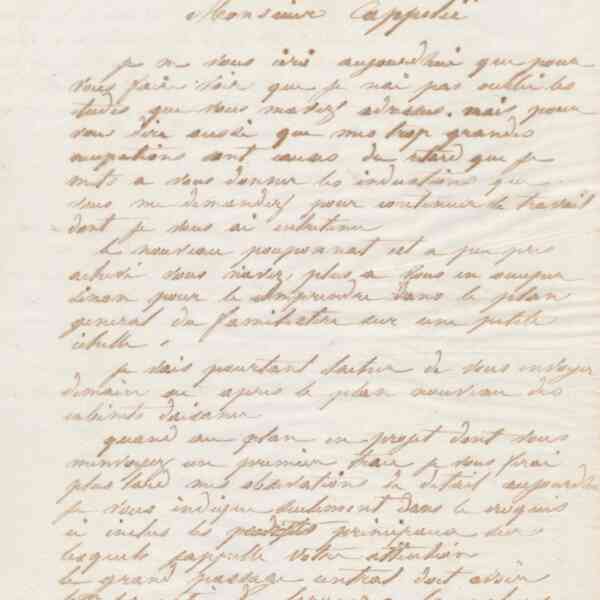 Monsieur Cappelié
je ne vous écris aujourdhui que pour
vous faire voir que je nai pas oublié les
études que vous mavez adressées. mais pour
vous dire aussi que mes trop grandes
occupations sont causes du retard que je
mets a vous donner les indications que
vous me demandez pour continuer le travail
dont je vous ai entretenu
le nouveau pouponnat est a peu pres
achevé vous navez plus a vous en occuper
sinon pour le comprendre dans le plan
general du familistere sur une petite
échelle.
je vais pourtant tacher de vous envoyer
demain ou apres le plan nouveau des
cabinets daisance
quand au plan en projet dont vous
menvoyez un premier tracé je vous ferai
plus tard mes observations de detail aujourdhu
je vous indique seulement dans le croquis
ci inclus les principaux sur
lesquels jappelle votre attention
le grand passage central doit avoir